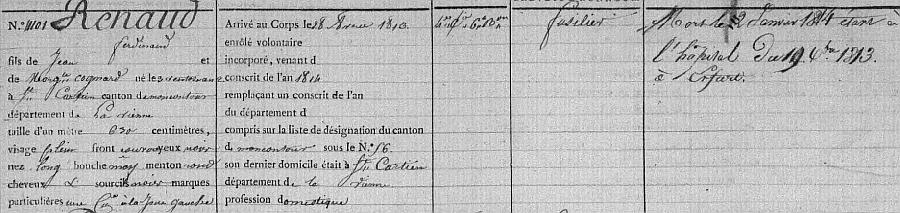 N.° 4401 Renaud
ferdinand
fils de Jean et
de Marg.te cognard né le 3
à S.t Cartien canton de moncontour
département de La vienne
taille d'un mètre 630 centimètres,
visage plein front couvert yeux noir
nez long bouche moy menton rond
cheveux & sourcils noirs marques
particulières une à la joue gauche
Arrivé au Corps le 18 1813
enrôlé volontaire
incorporé, venant d
conscrit de l'an 1814
remplaçant un conscrit de l'an
du département d
compris sur la liste de désignation du canton
d moncontour sous le N.° 56
son dernier domicile était à S.t Cartien
département de la vienne
profession domestique
fusilier
Mort le 2 Janvier 1814 étant à
l'hôpital Du 19 X.bre 1813.
à Erfurt.